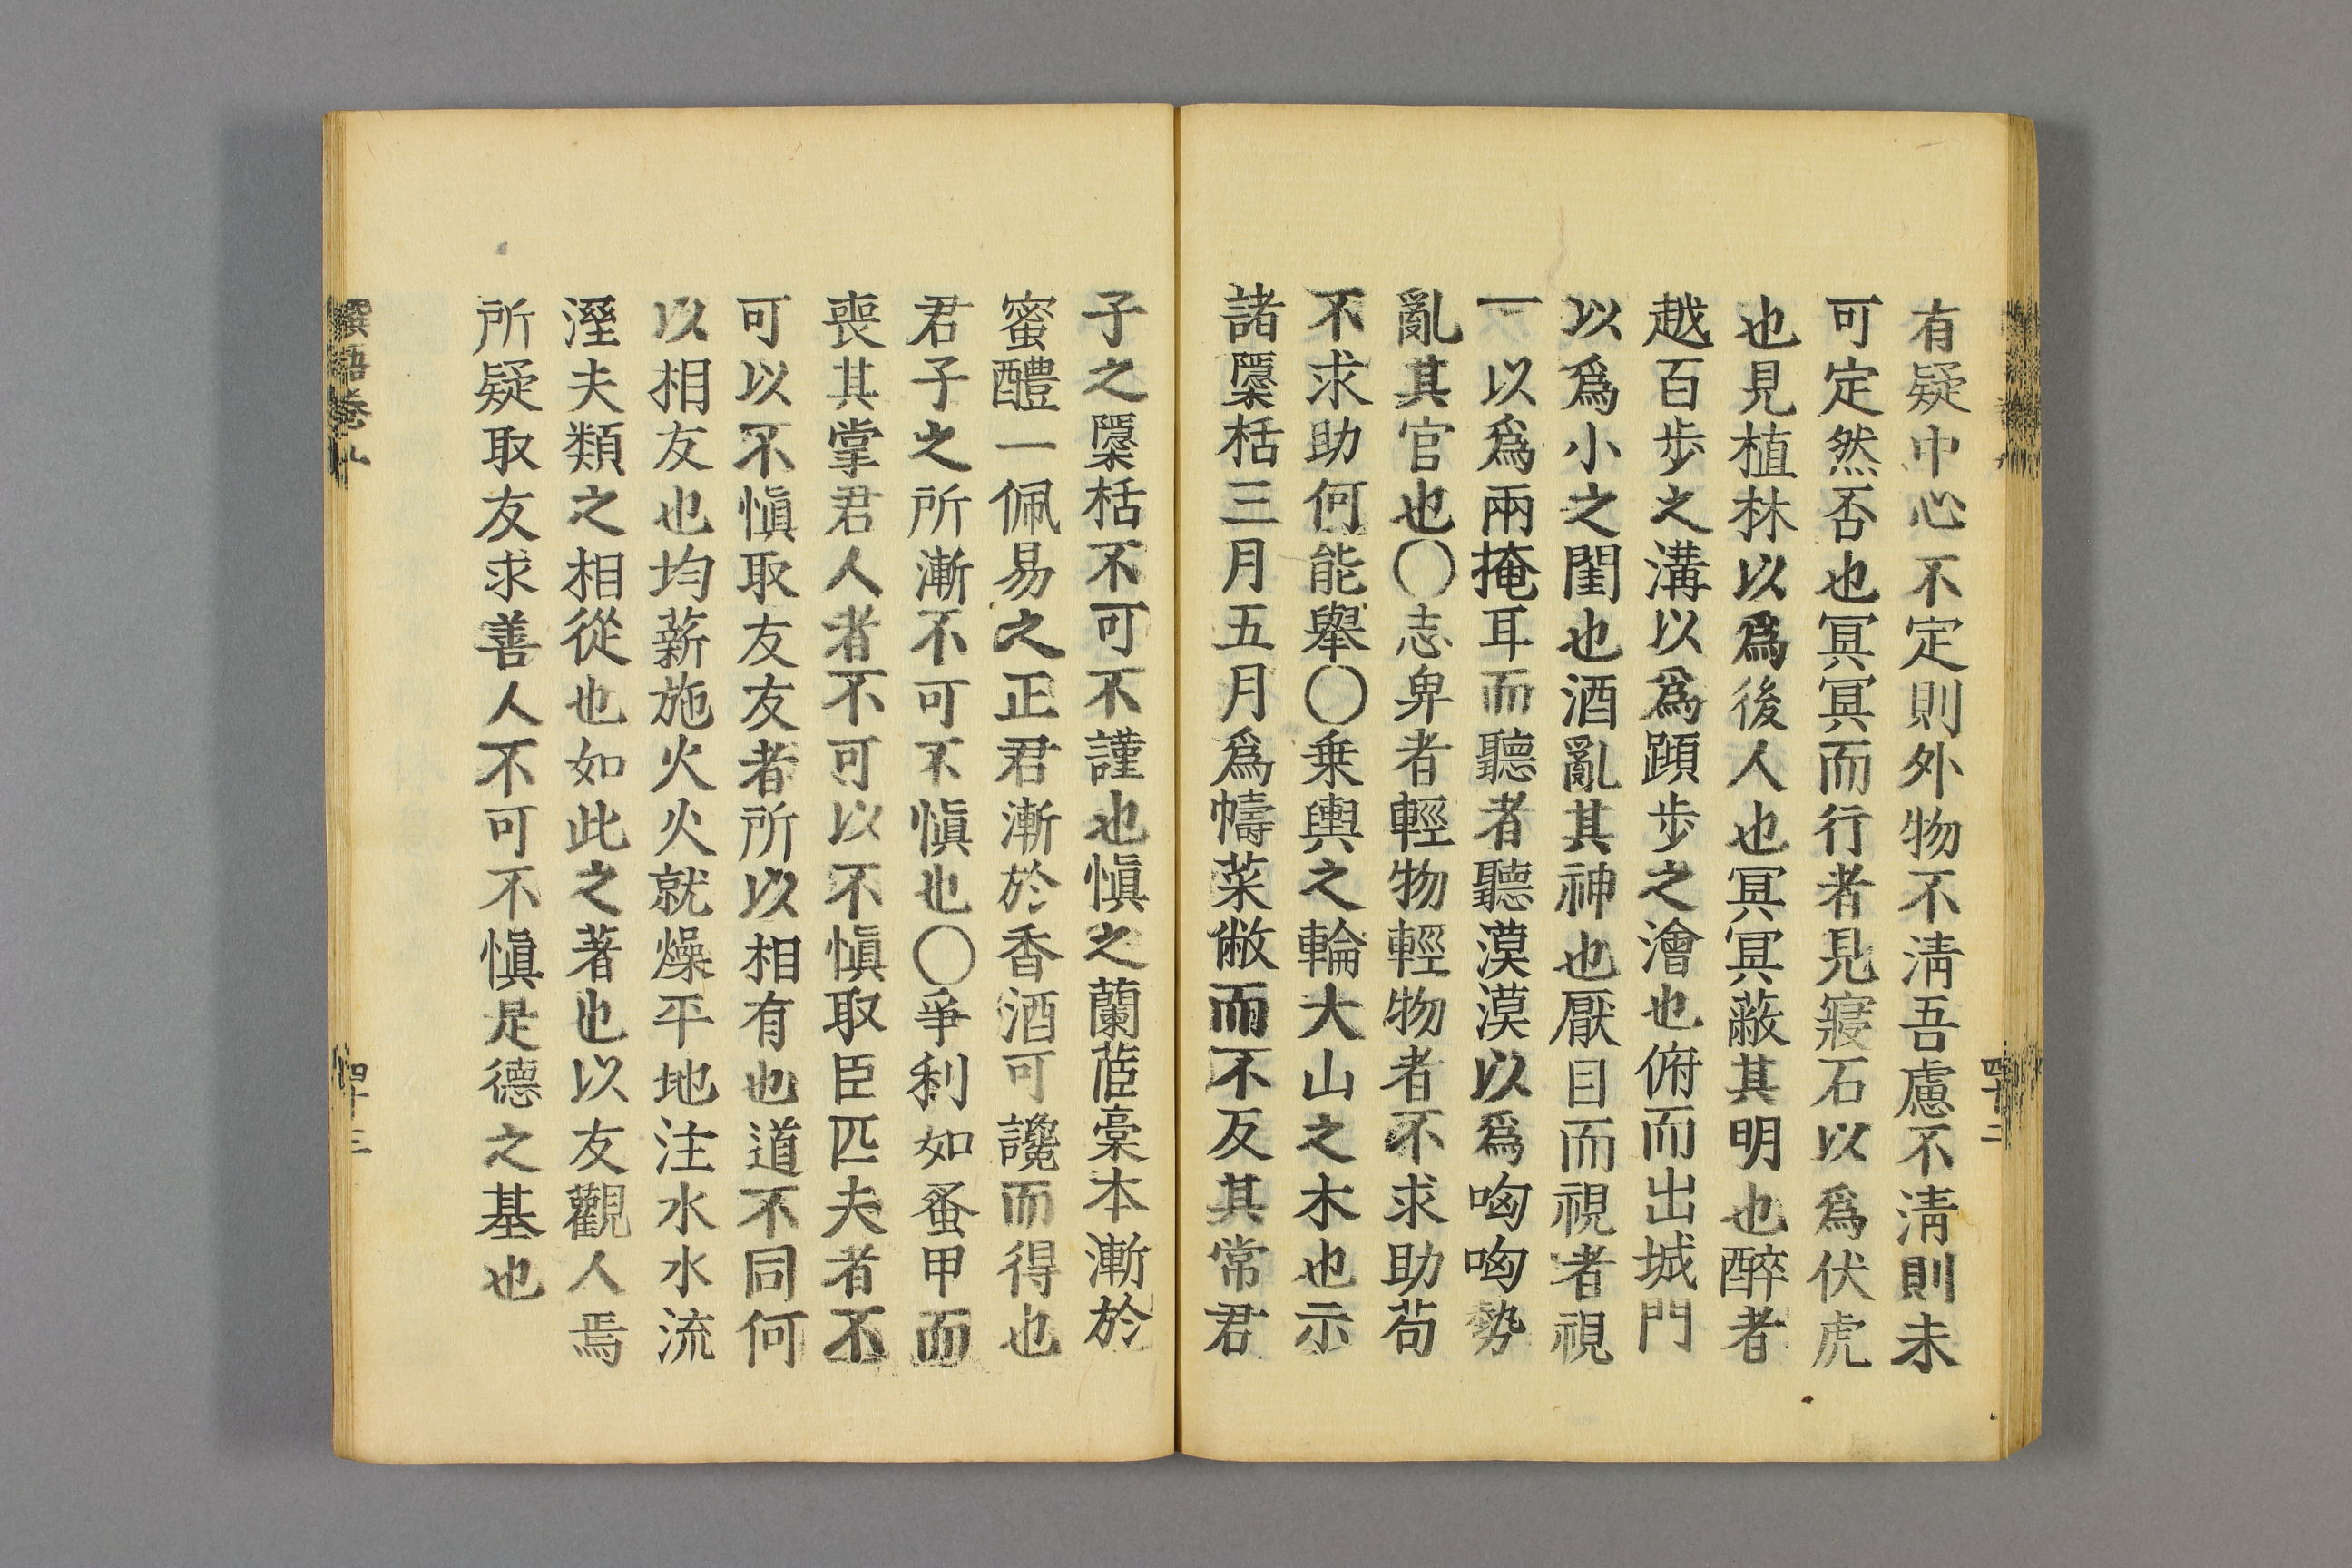 有疑中心不定則外物不淸吾慮不淸則未
可定然否也冥冥而行者見寢石以爲伏虎
也見植林以爲後人也冥冥蔽其明也醉者
越百步之溝以爲蹞步之澮也俯而出城門
以爲小之閨也酒亂其神也厭目而視者視
一以爲兩掩耳而聽者聽漠漠以爲哅哅勢
亂其官也〇志卑者輕物輕物者不求助苟
不求助何能舉〇乗輿之輪大山之木也示
諸檃栝三月五月爲幬菜敝而不反其常君
子之檃栝不可不謹也愼之蘭茝稾本漸於
蜜醴一佩易之正君漸於香酒可讒而得也
君子之所漸不可不愼也〇爭利如蚤甲而
喪其掌君人者不可以不愼取臣匹夫者不
可以不愼取友友者所以相有也道不同何
以相友也均薪施火火就燥平地注水水流
溼夫類之相從也如此之著也以友觀人焉
所疑取友求善人不可不愼是德之基也
語卷九
四十三
四十二